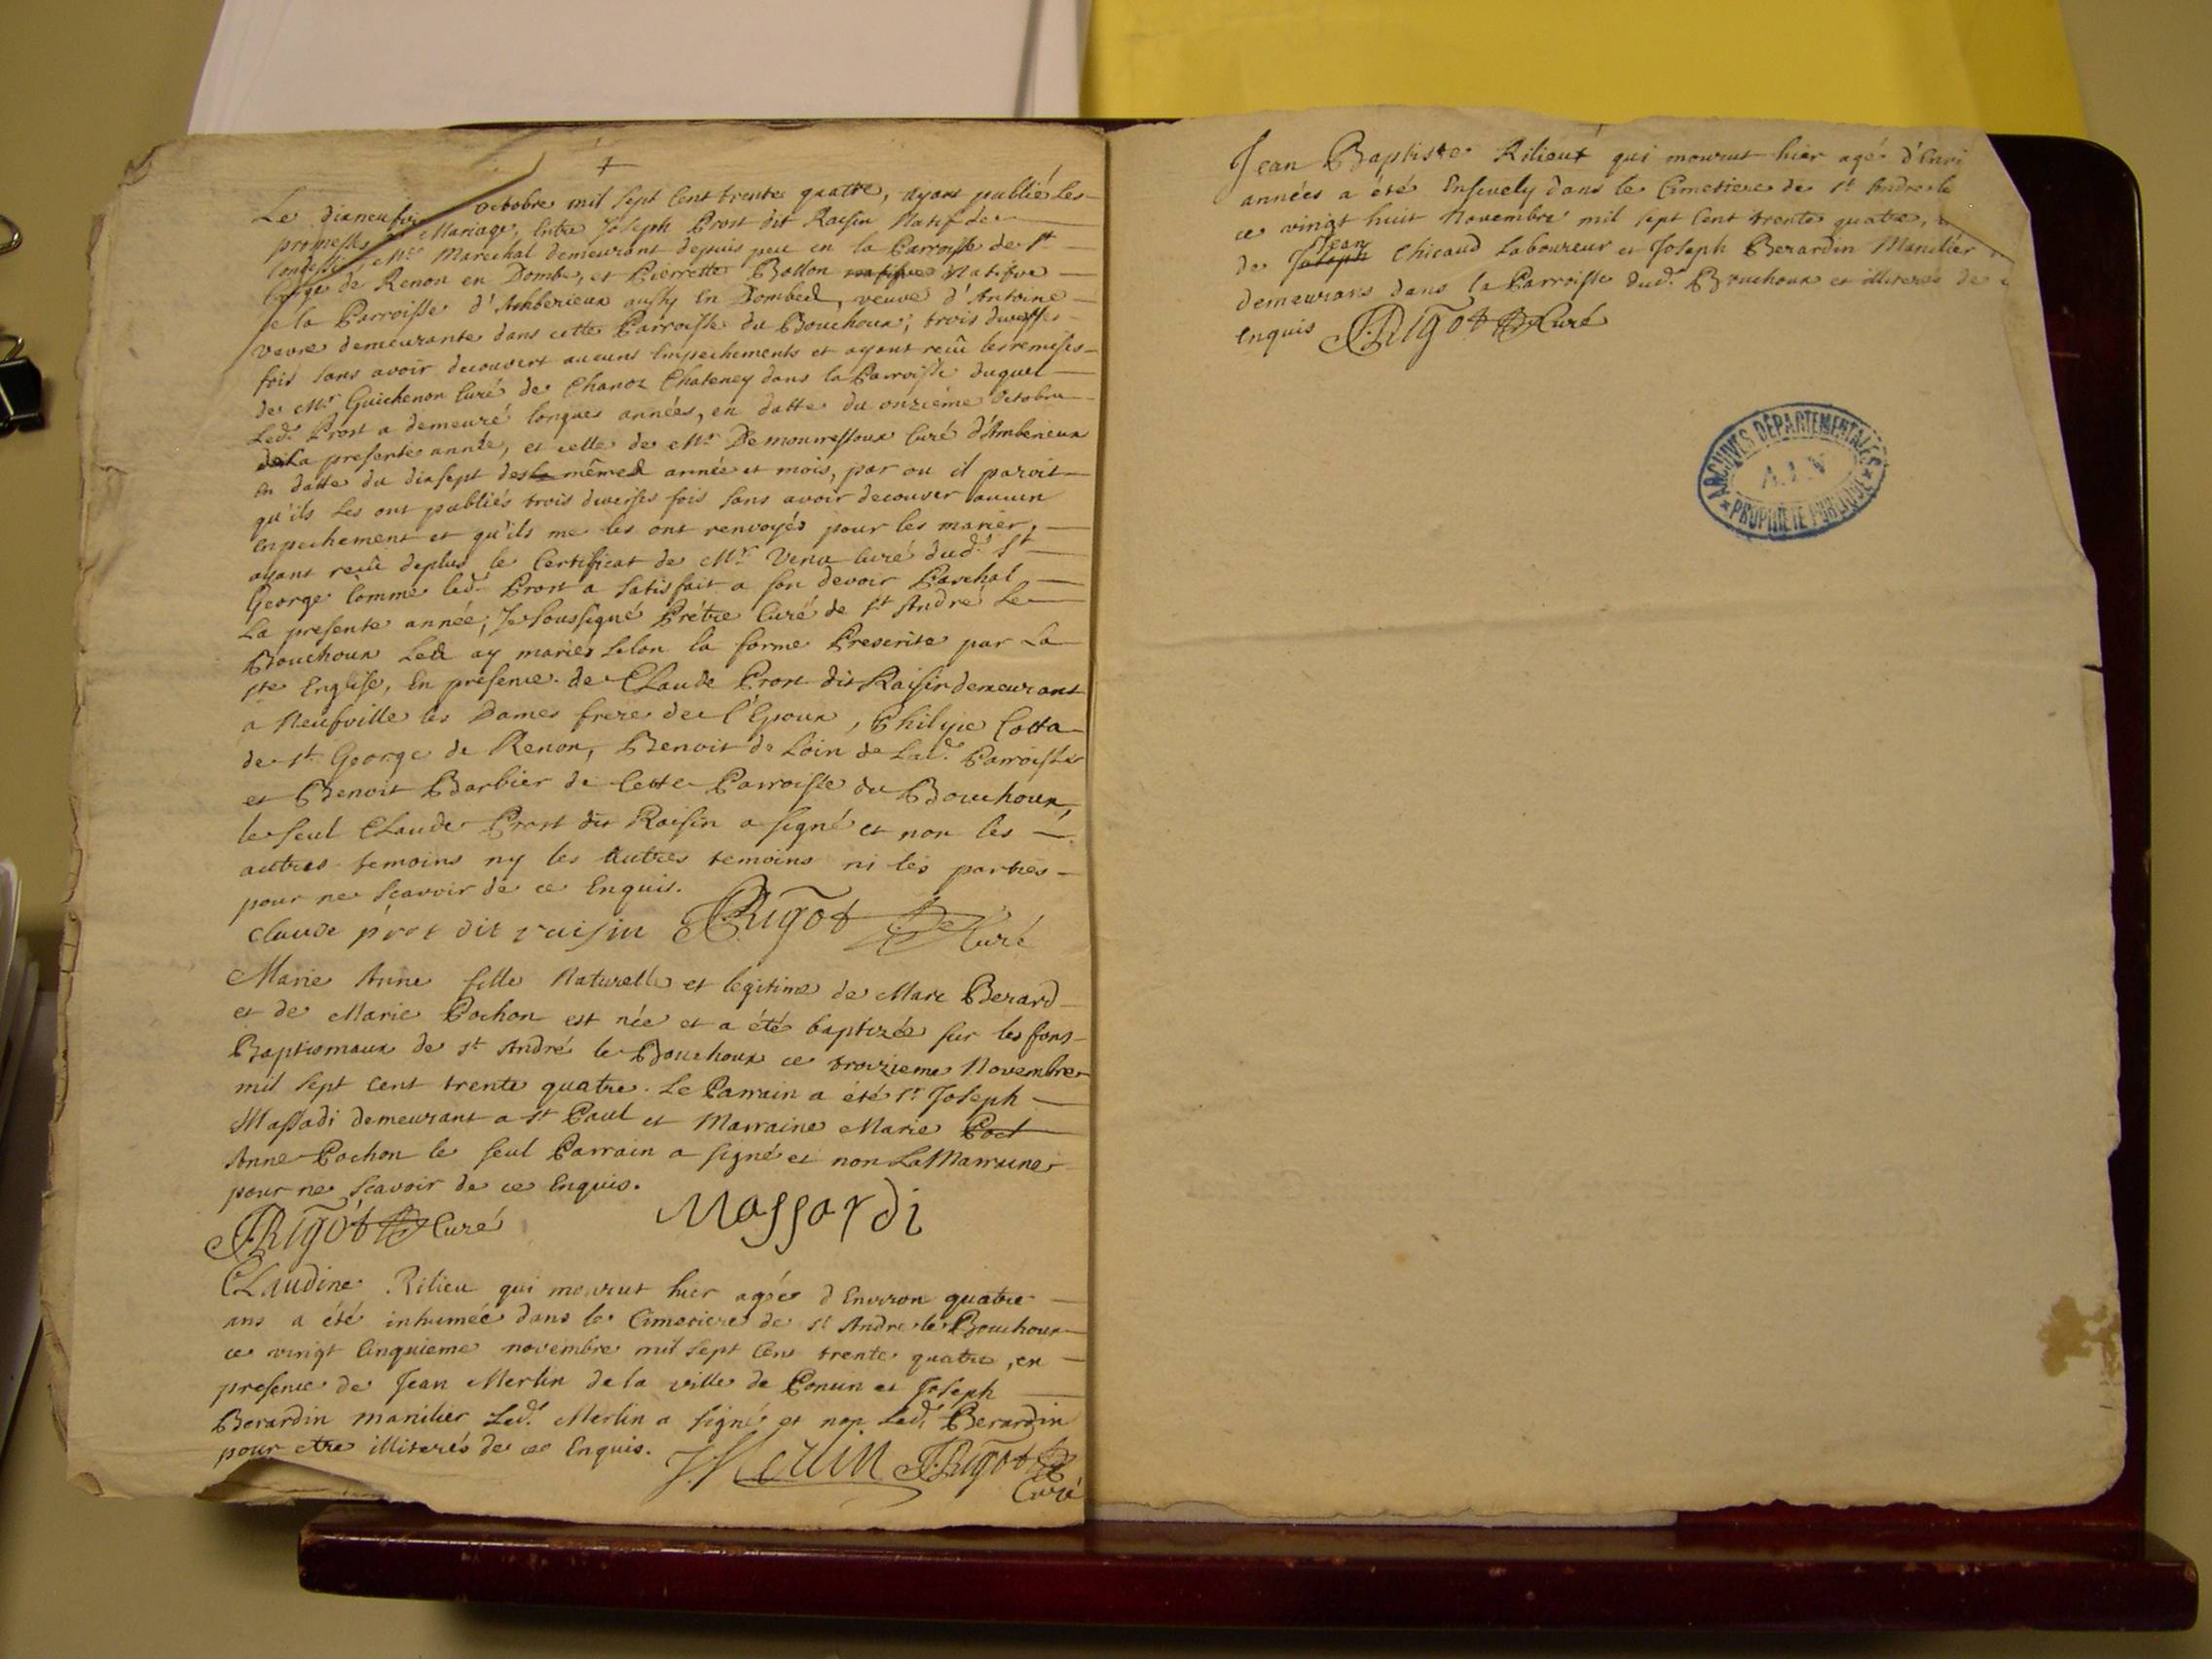 Le dixneufvi octobre mil sept Cent trente quatre, ayant publié les
promesses Mariage, Entre Joseph Prost dit Raisin Natif de
Mr. Marechal demeurant depuis peu en la Parroisse de St
George de Renon en Dombe, et Pierrette Bollon native Native
de la Parroisse d'Ambérieux aussy En Dombes, veuve d'Antoine
vevre demeurante dans cette Parroisse du Bouchoux; trois diverses
fois sans avoir decouvert aucuns Empechements et ayant reçû les remises
de Mr. Guichenon Curé de Chanoz Chateney dans la Parroisse duquel
Led. Prost a demeuré longues années, en datte du onzieme Octobre
de La presente année, et celle de Mr. Demouressoux Curé d'Amberieux
en datte du dixsept des la mêmes année et mois, par ou il paroit
qu'ils Les ont publiés trois diverses fois sans avoir decouver aucun
Enpechement et qu'ils me les ont renvoyés pour les marier,
ayant reçû deplus le Certificat de Mr. Venu Curé dud. St
George Comme led. Prost a satisfait a son devoir Paschal
La presente année; Je soussigné Prêtre Curé de St André Le
Bouchoux Les ay mariés selon la forme Prescrite par La
ste Englise, En présence de Claude Prost dit Raisin demeurant
a Neufville les Dames frere de l'Epoux, Philipe Cotta
de St George de Renon, Benoit de Loin de Lad. Parroisse
et Benoit Barbier de Cette Parroisse du Bouchoux,
le seul Claude Prost dit Raisin a signé et non les
autres temoins ny les autres temoins ni les parties
pour ne sçavoir de ce Enquis.
claude prot dit raisin JRigot Curé
Marie Anne fille Naturelle et legitime de Marc Berard
et de Marie Pochon est née et a été baptizée sur les fons
Baptismaux de St André le Bouchoux ce troizieme Novembre
mil sept cent trente quatre. Le Parrain a été Sr Joseph
Massadi demeurant a St Paul et Marraine Marie Poct
Anne Pochon le seul Parrain a signé et non La Marraine
pour ne sçavoir de ce Enquis.
JRigot Curé Massardi
Claudine Rilieu qui mourut hier agée d'Environ quatre
ans a été inhumée dans le Cimetiere de St Andre le Bouchoux
ce vingt Cinquieme novembre mil sept Cent trente quatre, en
presence de Jean Merlin de la ville de et Joseph
Berardin manilier Led. Merlin a signé et non Led. Berardin
pour etre illiterés de ce Enquis. JMerlin JRigot
Curé
Jean Baptiste Rilieux qui mourut hier agé d'Envi
années a été Ensevely dans le Cimetiere de St Andre le
ce vingt huit Novembre mil sept Cent trente quatre,
Jean
de Joseph Chicaud Laboureur et Joseph Berardin Manilier
demeurans dans la Parroisse dud. Bouchoux et illiterés de
Enquis JRigot Curé
ARCHIVES DÉPARTEMENTALES
AIN
PROPRIÉTÉ PUBLIQUE